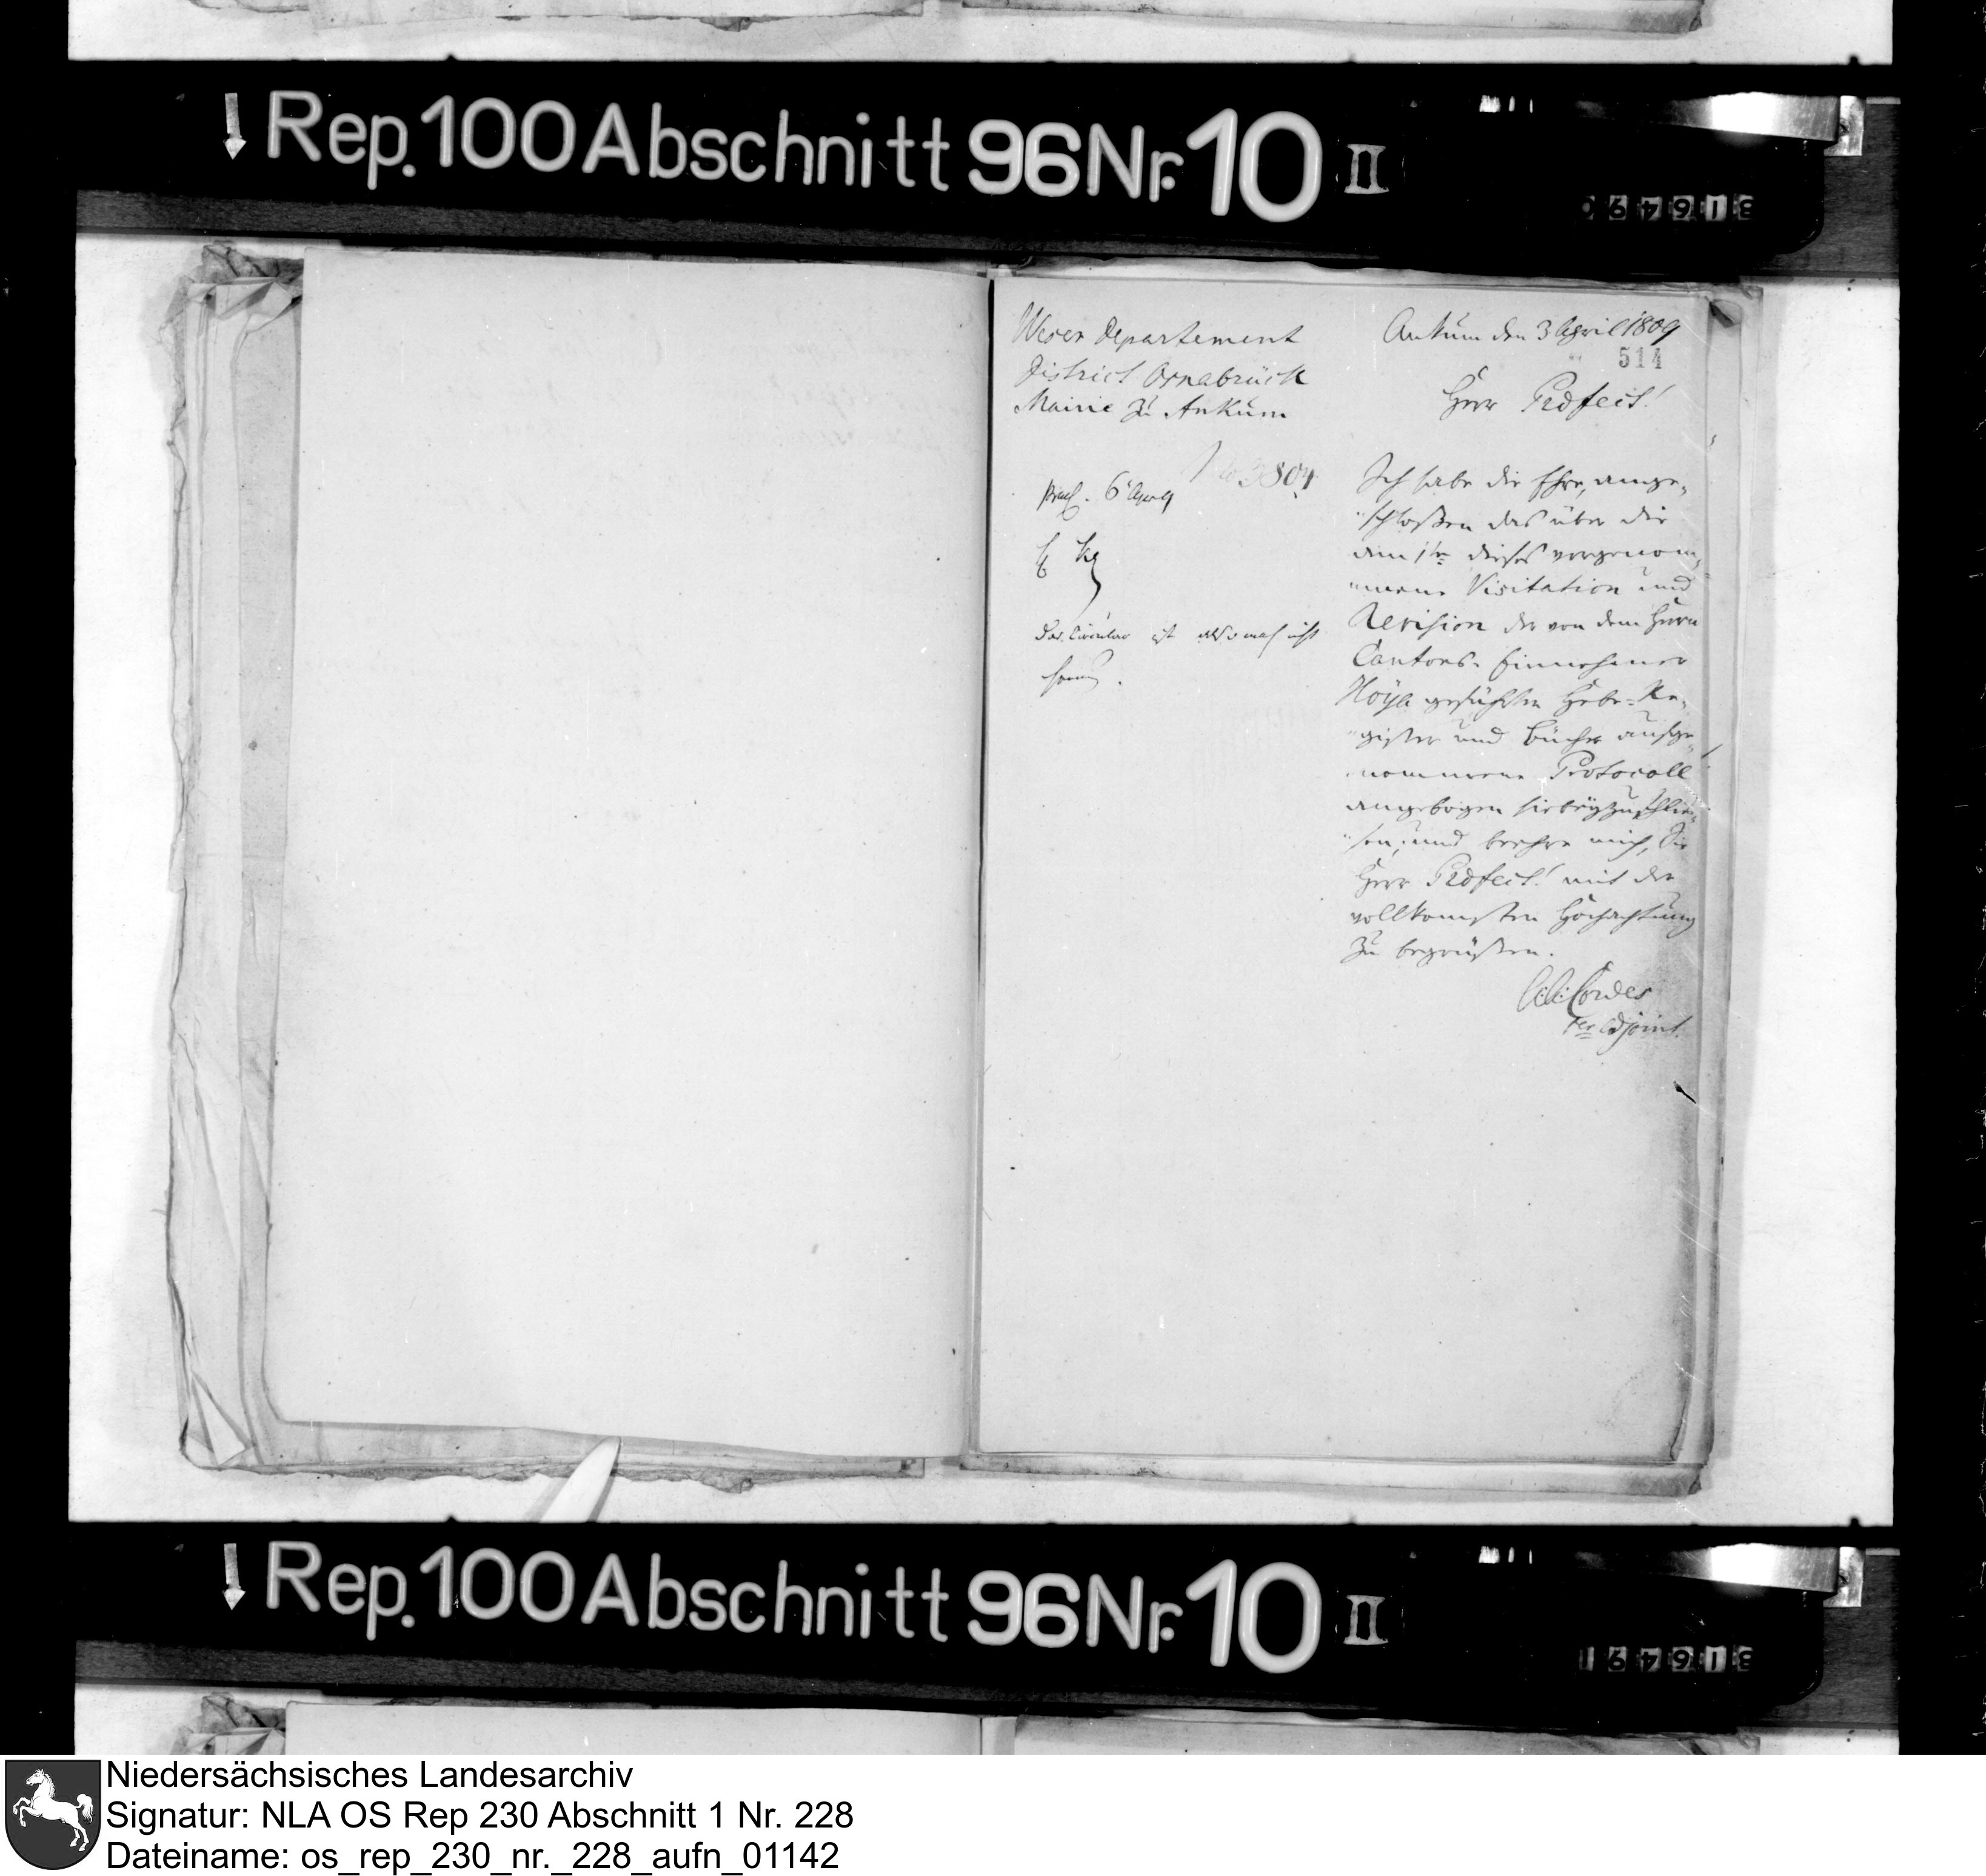 Rep. 100 Abschnitt 96 Nr. 10 II
316490
Weser Departement
District Osnabrück
Mairie zu Ankum
Ankum den 3 April 1809
514
Herr Präfect!
No 3804
praes. 6 Apr 9
Das Circular ist also noch nicht
Ich habe die Ehre, ange-
schloßen das über die
am 1ten dieses vorgenom-
mene Visitation und
Revision der von dem Herrn
Cantons-Einnehmer
Höya geführten Hebe-Re-
gister und Bücher aufge-
nommene Protocoll
angebogen hiebeyzuschlie-
sen, und beehre mich, Sie
Herr Präfect! mit der
vollkomsten Hochachtung
zu begrüßen.
Cordes
Adjoint.
Rep. 100 Abschnitt 96 Nr. 10 II
316491
Niedersächsisches Landesarchiv
Signatur: NLA OS Rep 230 Abschnitt 1 Nr. 228
Dateiname: os_rep_230_nr._228_aufn_01142